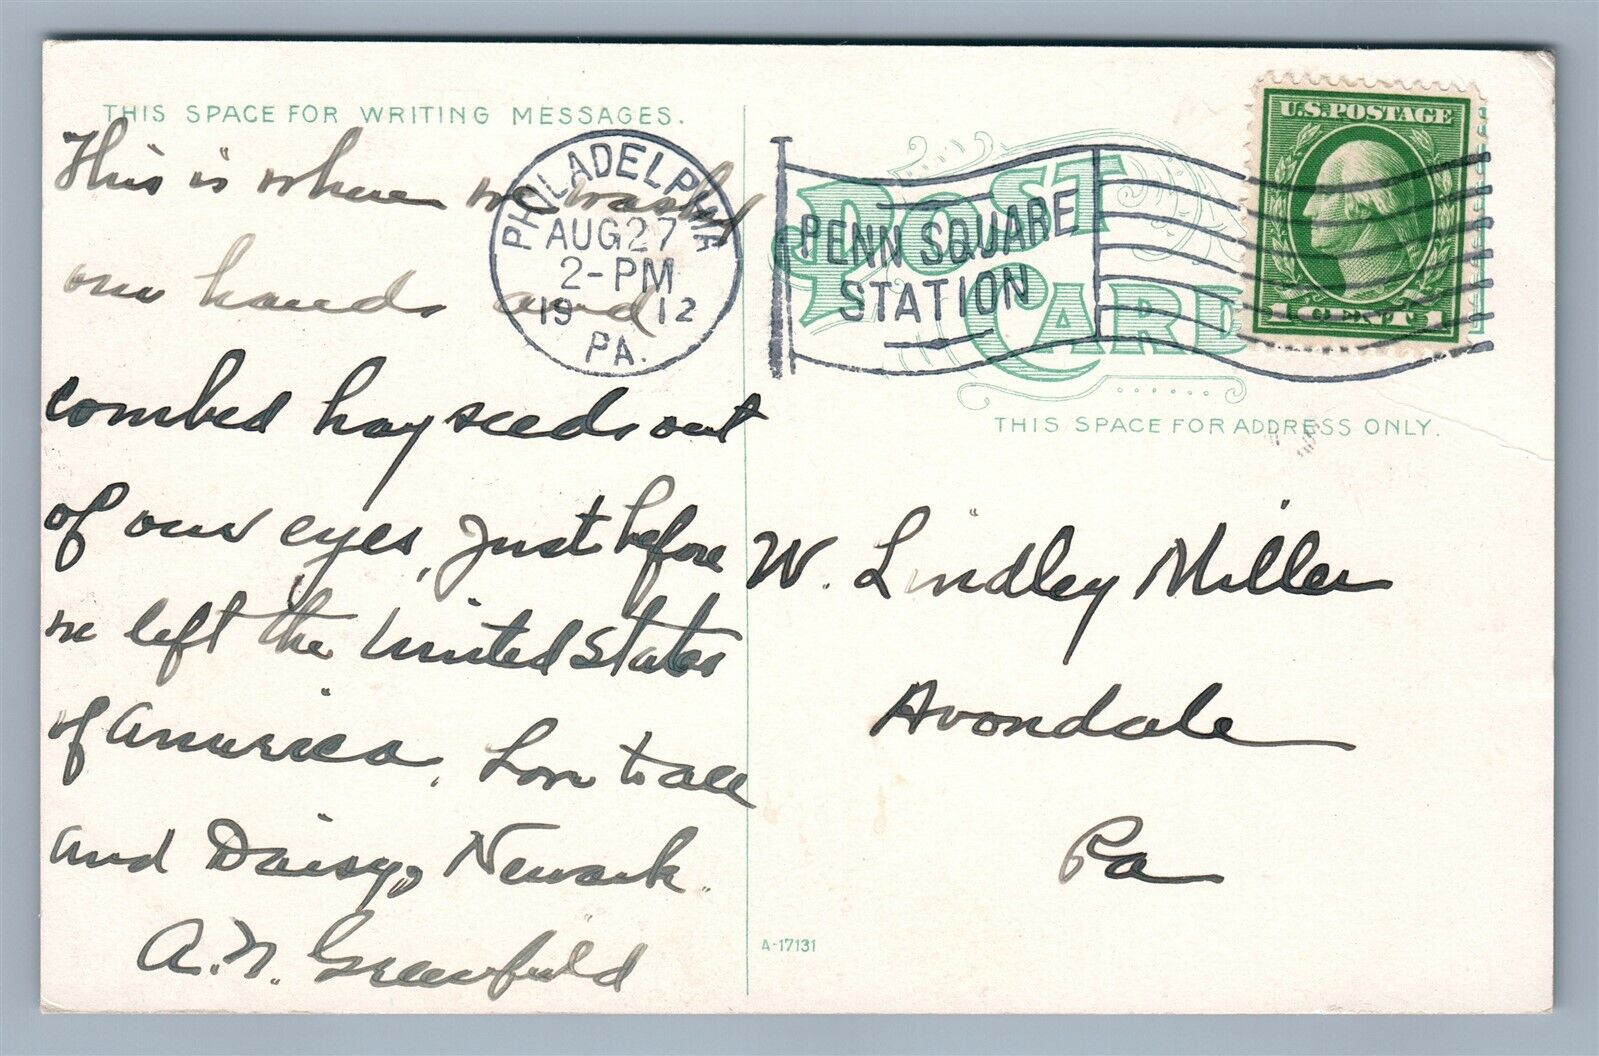 THIS SPACE FOR WRITING MESSAGES.
This is where we washed
our hands and
combed hay seeds out
of our eyes, just before
we left the United States
of America. Love to all
and Daisy, Newark.
A. N. Greenfield
PHILADELPHIA
AUG 27
2-PM
1912
PA.
PENN SQUARE
STATION
POST
CARD
U.S. POSTAGE
1 CENT 1
THIS SPACE FOR ADDRESS ONLY.
W. Lindley Miller
Avondale
Pa
A-17131